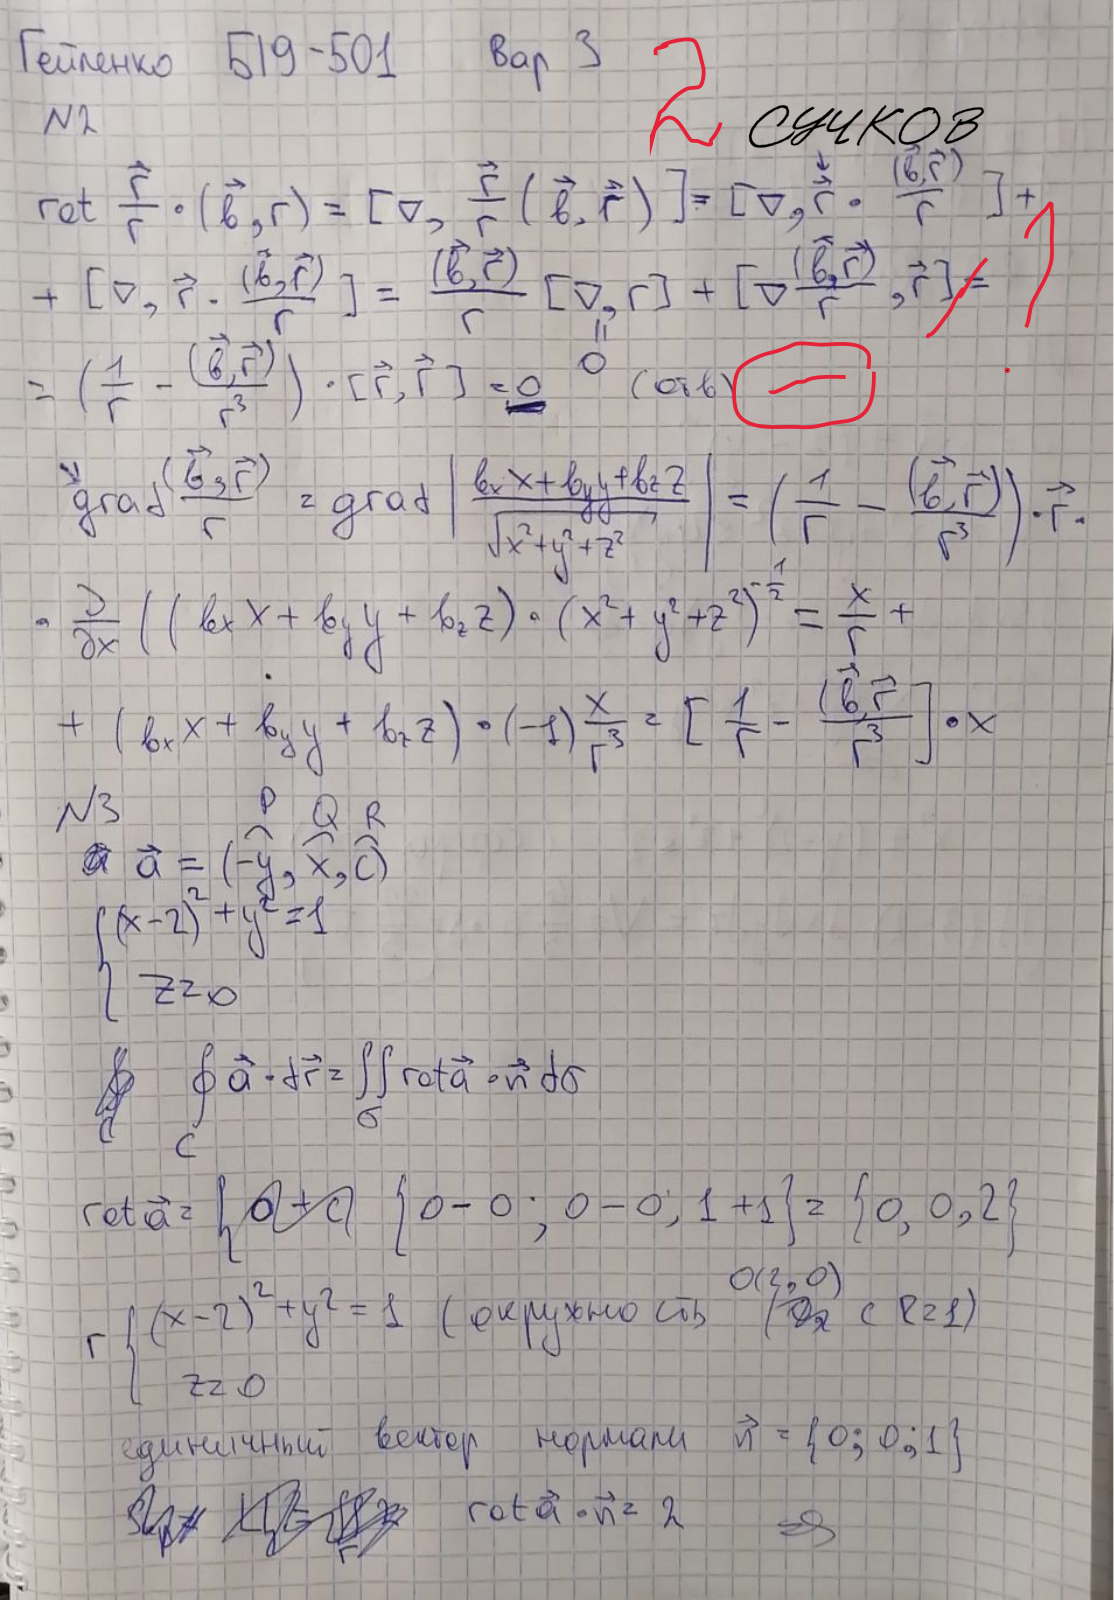 Гейленко Б19-501 Вар 3 2 сучков
N2
rot r⃗/r · (в⃗, r) = [∇, r⃗/r (в⃗, r⃗)] = [∇, r⃗ · (в⃗, r⃗)/r] +
+ [∇, r⃗ · (в⃗, r⃗)/r] = (в⃗, r⃗)/r [∇, r] + [∇ (в⃗, r⃗)/r, r⃗] =
= (1/r - (в⃗, r⃗)/r³) · [r⃗, r⃗] = 0 0 (отв) —
grad (в⃗, r⃗)/r = grad | (вₓx + вᵧy + в_z z)/√(x²+y²+z²) | = (1/r - (в⃗, r⃗)/r³) · r⃗ ·
· ∂/∂x ((вₓx + вᵧy + в_z z) · (x² + y² + z²)^(-1/2) = x/r +
+ (вₓx + вᵧy + в_z z) · (-1) x/r³ = [1/r - (в⃗, r⃗)/r³] · x
N3 P Q R
a⃗ = (-y, x, c)
{ (x-2)² + y² = 1
z = 0
∮ a⃗ · dr⃗ = ∬ rot a⃗ · n⃗ dσ
C σ
rot a⃗ = {0-0; 0-0; 1+1} = {0, 0, 2}
Г { (x-2)² + y² = 1 (окружность O(2,0) с R=1)
z = 0
единичный вектор нормали n⃗ = {0; 0; 1}
rot a⃗ · n⃗ = 2